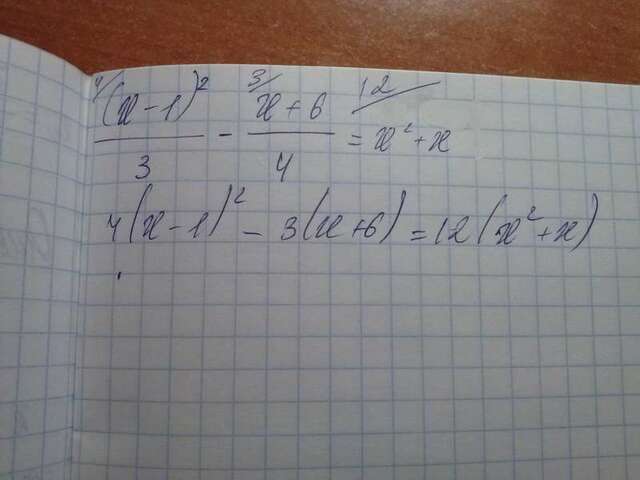 4/ (x-1)² 3/ x+6 12/
— - — = x²+x
3 4
4(x-1)² - 3(x+6) = 12(x²+x)